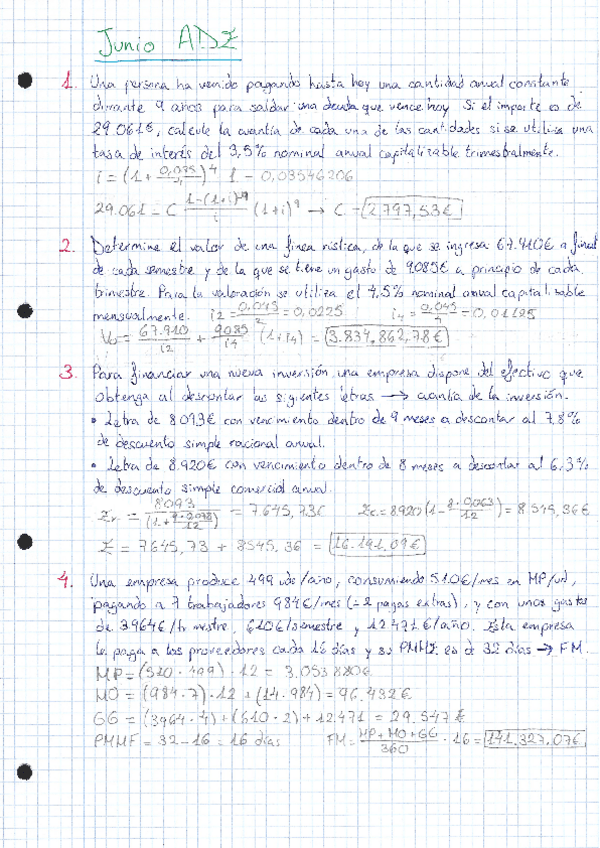 Junio ADE
1. Una persona ha venido pagando hasta hoy una cantidad anual constante
durante 9 años para saldar una deuda que vence hoy. Si el importe es de
29.061€, calcule la cuantía de cada una de las cantidades si se utiliza una
tasa de interés del 3,5% nominal anual capitalizable trimestralmente.
i = (1 + 0,035/4)^4 - 1 = 0,03546206
29.061 = C (1-(1+i)^-9)/i (1+i)^9 → C = 2.797,53€
2. Determine el valor de una finca rústica, de la que se ingresa 67.910€ a final
de cada semestre y de la que se tiene un gasto de 9.085€ a principio de cada
trimestre. Para la valoración se utiliza el 4,5% nominal anual capitalizable
mensualmente. i2 = 0,045/2 = 0,0225 i4 = 0,045/4 = 0,01125
V0 = 67.910/i2 + 9085/i4 (1+i4) = 3.834.862,78€
3. Para financiar una nueva inversión, una empresa dispone del efectivo que
obtenga al descontar las sigientes letras → cuantía de la inversión.
• Letra de 8093€ con vencimiento dentro de 9 meses a descontar al 7,8%
de descuento simple racional anual.
• Letra de 8.920€ con vencimiento dentro de 8 meses a descontar al 6,3%
de descuento simple comercial anual.
Er = 8093/(1+9·0,078/12) = 7645,73€ Ec = 8920(1-8·0,063/12) = 8545,36€
E = 7645,73 + 8545,36 = 16.191,09€
4. Una empresa produce 499 uds/año, consumiendo 510€/mes en MP/ud,
pagando a 7 trabajadores 984€/mes (+2 pagas extras), y con unos gastos
de 3964€/trimestre, 610€/semestre y 12471€/año. Esta empresa
le paga a los proveedores cada 16 días y su PMME es de 32 días → FM.
MP = (510·499)·12 = 3.053.880€
MO = (984·7)·12 + (14·984) = 96.432€
GG = (3964·4) + (610·2) + 12471 = 29.547€
PMMF = 32-16 = 16 días FM = (MP+MO+GG)/360 · 16 = 141.327,07€